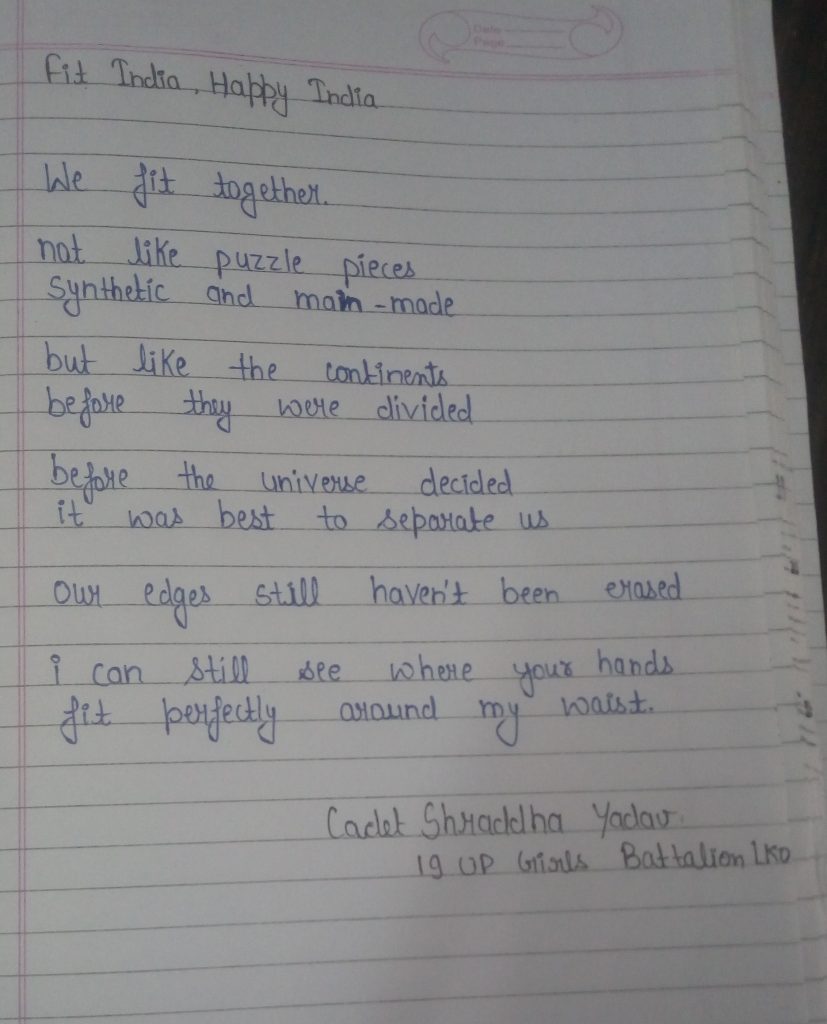 Date
Page
Fit India, Happy India
We fit together.
not like puzzle pieces
synthetic and man-made
but like the continents
before they were divided
before the universe decided
it was best to separate us
our edges still haven't been erased
i can still see where your hands
fit perfectly around my waist.
Cadet Shraddha Yadav.
19 UP Girls Battalion LKO